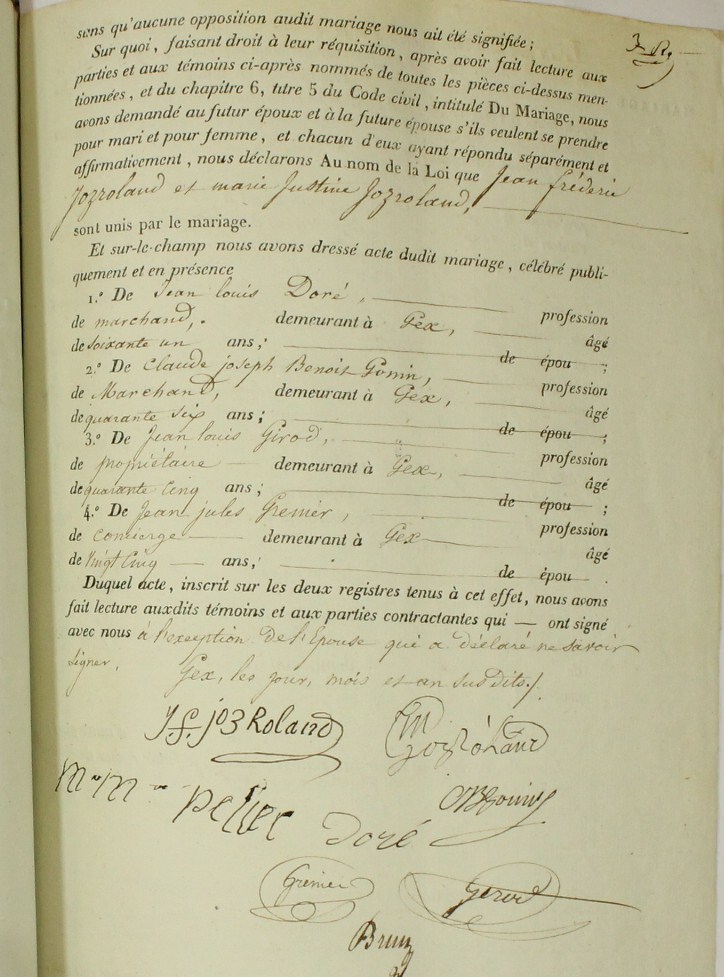 sens qu'aucune opposition audit mariage nous ait été signifiée ;
Sur quoi, faisant droit à leur réquisition, après avoir fait lecture aux
parties et aux témoins ci-après nommés de toutes les pièces ci-dessus men-
tionnées, et du chapitre 6, titre 5 du Code civil, intitulé Du Mariage, nous
avons demandé au futur époux et à la future épouse s'ils veulent se prendre
pour mari et pour femme, et chacun d'eux ayant répondu séparément et
affirmativement, nous déclarons Au nom de la Loi que Jean fréderic
Jozroland et marie Justine Jozroland,
sont unis par le mariage.
Et sur-le-champ nous avons dressé acte dudit mariage, célébré publi-
quement et en présence
1.° De Jean louis Doré, profession
de marchand, demeurant à Gex, âgé
de soixante un ans ; de épou ;
2.° De Claude joseph Benoit Gonin, profession
de Marchand, demeurant à Gex, âgé
de quarante Six ans ; de épou ;
3.° De Jean louis Girod, profession
de propriétaire demeurant à Gex, âgé
de quarante Cinq ans ; de épou ;
4.° De Jean jules Grenier, profession
de concierge demeurant à Gex âgé
de Vingt Cinq ans ; de épou .
Duquel acte, inscrit sur les deux registres tenus à cet effet, nous avons
fait lecture auxdits témoins et aux parties contractantes qui — ont signé
avec nous à l'exeption de l'Epouse qui a déclaré ne savoir
signer. Gex, les jour, mois et an susdits./
J f. joz Roland Jozroland
pellet Doré
Grenier Girod